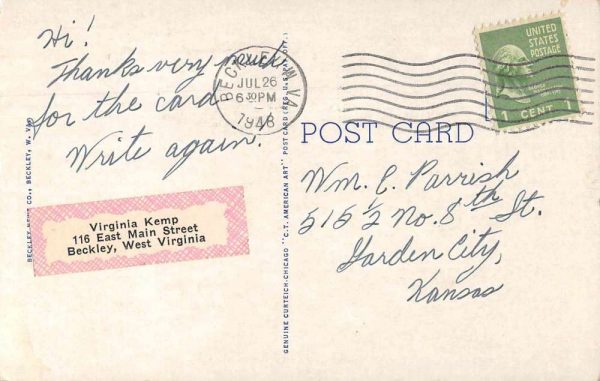 Hi!
Thanks very much
for the card
Write again!
Virginia Kemp
116 East Main Street
Beckley, West Virginia
BECKLEY NEWS CO., BECKLEY, W. VA.
BECKLEY W.VA.
JUL 26
6 30 PM
1948
GENUINE CURTEICH-CHICAGO "C.T. AMERICAN ART" POST CARD (REG. U.S. PAT. OFF.)
UNITED
STATES
POSTAGE
1 CENT 1
POST CARD
Wm. C. Parrish
515 ½ No. 8th St.
Garden City,
Kansas